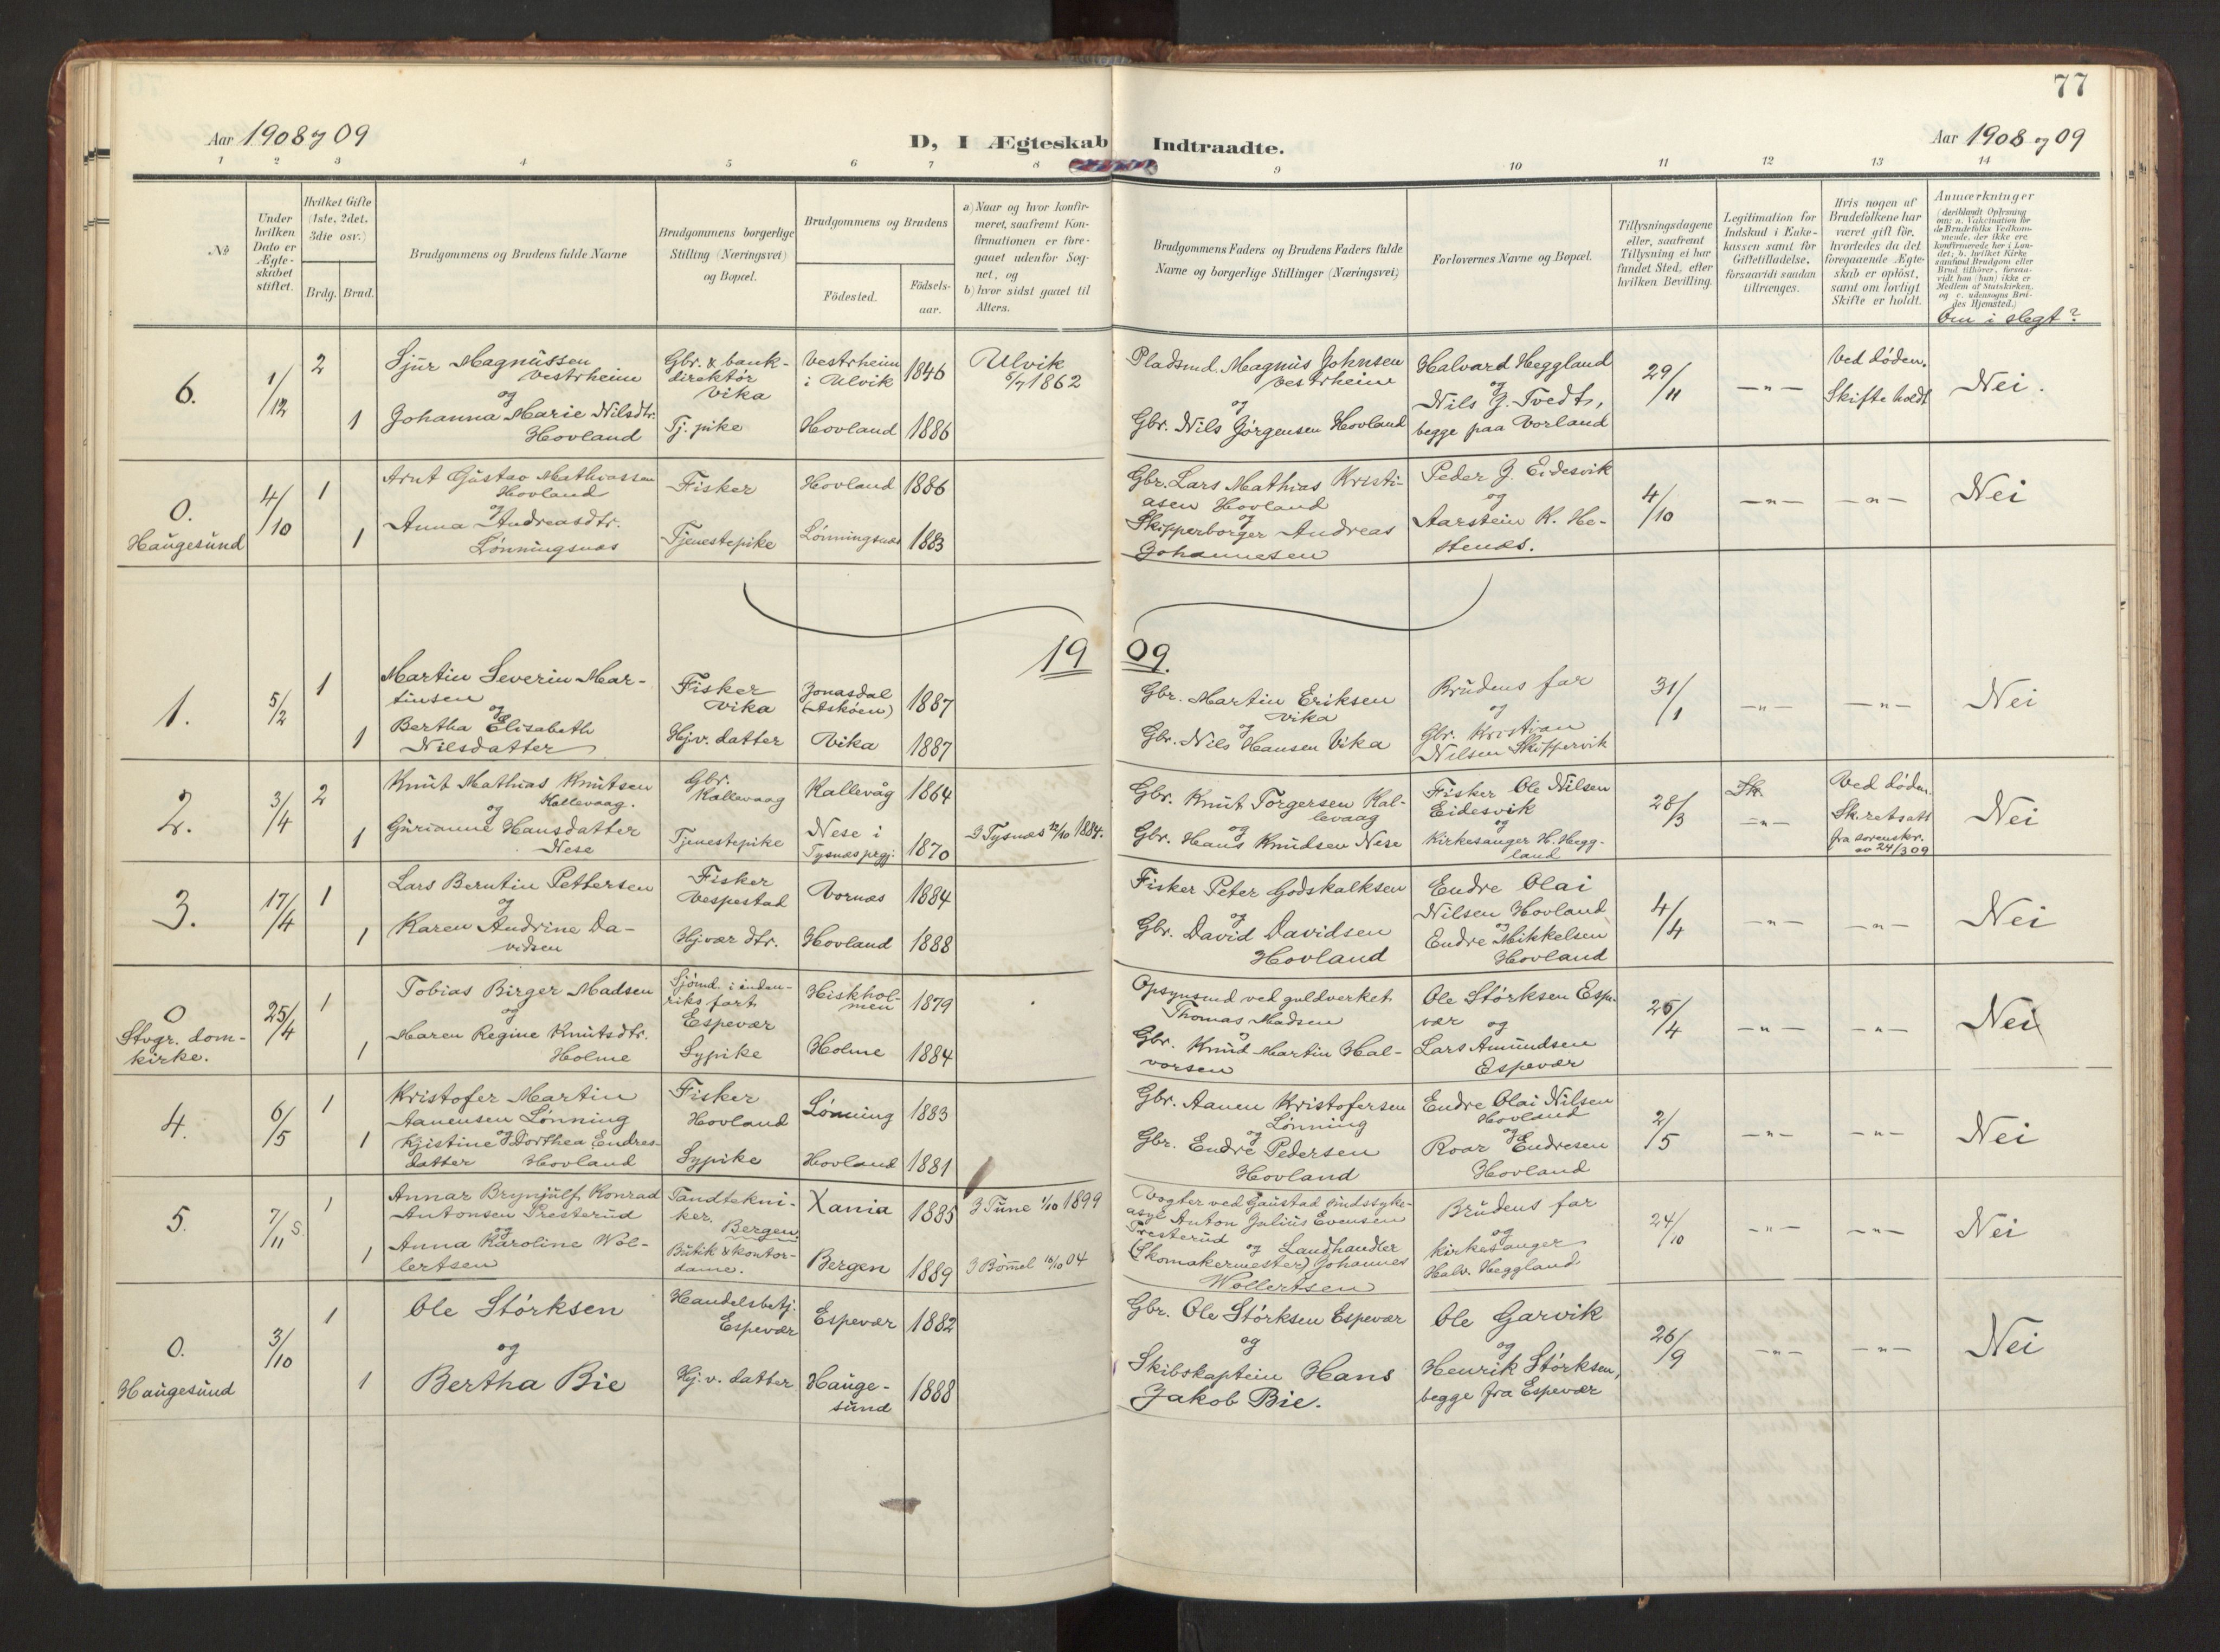 77
Aar 1908 og 09
D, I Ægteskab Indtraadte.
Aar 1908 og 09
1 2 3 4 5 6 7 8 9 10 11 12 13 14
No
Under
hvilken
Dato er
Ægte-
skabet
stiftet.
Hvilket Gifte
(1ste, 2det,
3die osv.)
Brdg. Brud.
Brudgommens og Brudens fulde Navne
Brudgommens borgerlige
Stilling (Næringsvei)
og Bopæl.
Brudgommens og Brudens
Födested.
Födsels-
aar.
a) Naar og hvor konfir-
meret, saafremt Kon-
firmationen er fore-
gaaet udenfor Sog-
net, og
b) hvor sidst gaaet til
Alters.
Brudgommens Faders og Brudens Faders fulde
Navne og borgerlige Stillinger (Næringsvei)
Forlovernes Navne og Bopæl.
Tillysningsdagene
eller, saafremt
Tillysning ei har
fundet Sted, efter
hvilken Bevilling.
Legitimation for
Indskud i Enke-
kassen samt for
Giftetilladelse,
forsaavidt saadan
tiltrænges.
Hvis nogen af
Brudefolkene har
været gift för,
hvorledes da det
foregaaende Ægte-
skab er oplöst,
samt om lovligt
Skifte er holdt.
Anmærkninger
(deriblandt Oplysning
om: a. Vakcination for
de Brudefolks Vedkom-
mende, der ikke ere
konfirmerede her i Lan-
det; b. hvilket Kirke-
samfund Brudgom eller
Brud tilhörer, forsaa-
vidt han (hun) ikke er
Medlem af Statskirken,
og c. udensogns Bru-
des Hjemsted.)
Om i slegt?
6.
1/12
2
1
Sjur Magnussen
Vestrheim
og
Johanna Marie Nilsdtr.
Hovland
Gbr. & bank-
direktør
Vika
Tj. pike
Vestrheim
i Ulvik
Hovland
1846
1886
Ulvik
5/7 1862
Pladsmd. Magnus Johnsen
Vestrheim
og
Gbr. Nils Jørgensen Hovland
Halvard Heggland
og
Nils J. Tvedt,
begge paa Vorland
29/11
—"—
Ved døden.
Skifte holdt
Nei.
0.
Haugesund
4/10
1
1
Arnt Gustav Mathiassen
Hovland
og
Anna Andreasdtr.
Lønningsnæs
Fisker
Tjenestepike
Hovland
Lønningsnæs
1886
1883
Gbr. Lars Mathias Kristi-
asen Hovland
og
Skipperborger Andreas
Johannesen
Peder J. Eidesvik
og
Aarstein K. He-
stenæs.
4/10
—"—
—"—
Nei
1909.
1.
5/2
1
1
Martin Severin Mar-
tinsen
og
Bertha Elisabeth
Nilsdatter
Fisker
Vika
Hjv. datter
Jonasdal
(Askøen)
Vika
1887
1887
Gbr. Martin Eriksen
Vika
og
Gbr. Nils Hansen Vika
Brudens far
og
Gbr. Kristian
Nilsen Skippervik
31/1
—"—
—"—
Nei
2.
3/4
2
1
Knut Mathias Knutsen
Kallevaag.
og
Gurianne Hansdatter
Nese
Gbr.
Kallevaag
Tjenestepike
Kallevåg
Nese i
Tysnes prgj.
1864
1870
I Tysnes 12/10 1884.
Gbr. Knut Torgersen Kal-
levaag
og
Gbr. Hans Knudsen Nese
Fisker Ole Nilsen
Eidesvik
og
Kirkesanger H. Hegg-
land
28/3
Sk.
—"—
Ved døden.
Sk.retsatt
fra sorenskr.
av 24/3 09
Nei
3.
17/4
1
1
Lars Berntin Pettersen
og
Karen Andrine Da-
vidsen
Fisker
Vespestad
Hjvær. dtr.
Vornæs
Hovland
1884
1888
Fisker Peter Godskalksen
og
Gbr. David Davidsen
Hovland
Endre Olai
Nilsen Hovland
og
Endre Mikkelsen
Hovland
4/4
—"—
—"—
Nei
0
Stvgr. dom-
kirke.
25/4
1
1
Tobias Birger Madsen
og
Maren Regine Knutsdtr.
Holme
Sjømd. i inden-
riks fart
Espevær
Sypike
Hiskhol-
men
Holme
1879
1884
Opsynsmd ved guldverket
Thomas Madsen
og
Gbr. Knud Martin Hal-
vorsen
Ole Størksen Espe-
vær og
Lars Amundsen
Espevær
25/4
—"—
—"—
Nei
4.
6/5
1
1
Kristofer Martin
Aanensen Lønning
og
Kjistine Dorthea Endres-
datter Hovland
Fisker
Hovland
Sypike
Lønning
Hovland
1883
1881
Gbr. Aanen Kristofersen
Lønning
og
Gbr. Endre Pedersen
Hovland
Endre Olai Nilsen
Hovland
og
Roar Endresen
Hovland
2/5
—"—
—"—
Nei
5.
7/11 S
1
1
Annar Brynjulf Konrad
Antonsen Presterud
og
Anna Karoline Wol-
lertsen
Tandtekni-
ker.
Bergen.
Butik & kontor-
dame.
Xania
Bergen
1885
1889
I Tune 1/10 1899
I Bømmel 16/10 04
Vogter ved Gaustad sindssyke-
asyl Anton Julius Evensen
Presterud
og Landhandler
(Skomakermester) Johannes
Wollertsen
Brudens far
og
Kirkesanger
Halv. Heggland
24/10
—"—
—"—
Nei
0.
Haugesund
3/10
1
1
Ole Størksen
og
Bertha Bie
Handelsbetj.
Espevær
Hj.v. datter
Espevær
Hauge-
sund
1882
1888
Gbr. Ole Størksen Espevær
og
Skibskaptein Hans
Jakob Bie.
Ole Garvik
og
Henrik Størksen,
begge fra Espevær
26/9
—"—
—"—
Nei